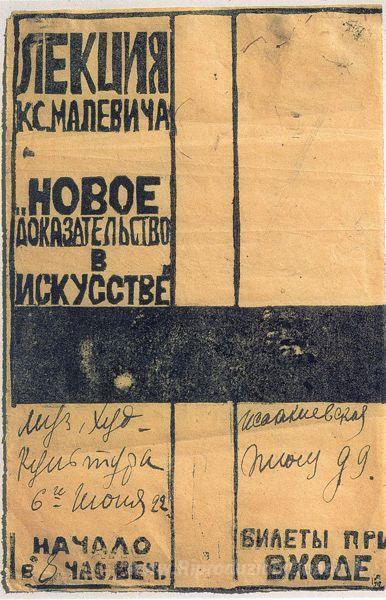 ЛЕКЦИЯ
К.С. МАЛЕВИЧА
„НОВОЕ
ДОКАЗАТЕЛЬСТВО
В
ИСКУССТВЕ"
Муз. Худ.
Культура
6го Июня 22
НАЧАЛО
В 8 ЧАС. ВЕЧ.
Исаакиевская
площ 99.
БИЛЕТЫ ПРИ
ВХОДЕ.